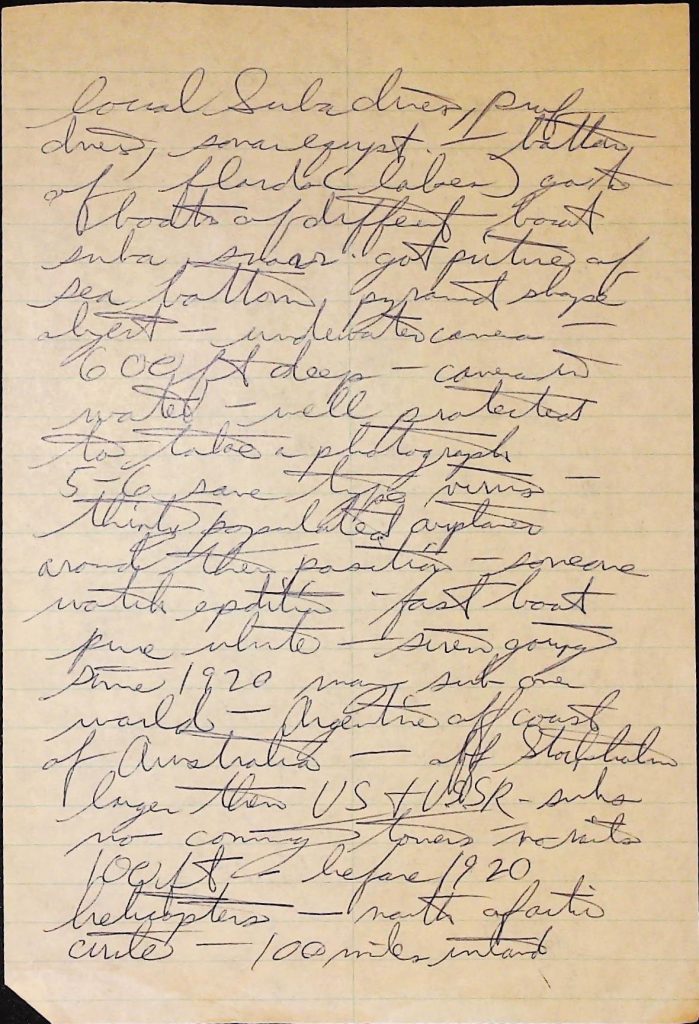 local Scuba divers, prof
divers, sonar equpt. — bottom
of Florida (
boats of different boat
suba sonar. got picture of
sea bottom, pyramid shape
object — underwater camera —
600 ft deep — camera in
water — well protected
to take a photograph
5-6 same type —
thinly populated airplanes
around their position — someone
watch expdition - fast boat
pure white — siren going
since 1920 many sub over
world — Argentine off coast
of Australia — off Stockholm
larger then US + USSR - subs
no conning towers —
100 ft — before 1920
helicopters — north of artic
circle — 100 miles inland